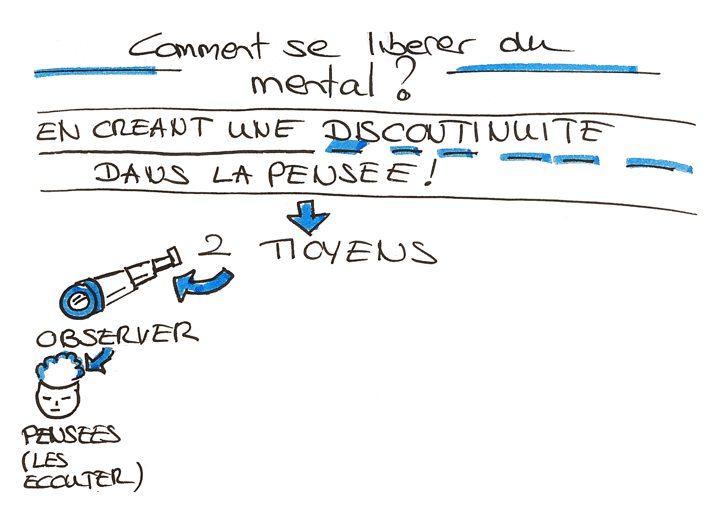 Comment se liberer du
mental ?
EN CREANT UNE DISCONTINUITE
DANS LA PENSEE !
2 MOYENS
OBSERVER
PENSEES
(LES
ECOUTER)